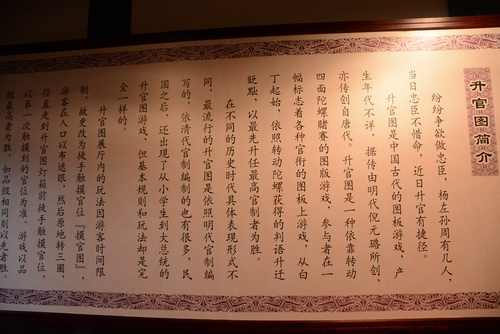 升官图简介
纷纷争欲做忠臣，杨左孙周有几人，
当日忠臣不惜命，近日升官有捷径。
升官图是中国古代的图板游戏，产
生年代不详，据传由明代倪元璐所创，
亦传创自唐代，升官图是一种依靠转动
四面陀螺赌赛的图版游戏，参与者在一
幅标志着各种官衔的图板上游戏，从白
丁起始，依照转动陀螺获得的判语升迁
贬黜，以最先升任最高官制者为胜。
在不同的历史时代具体表现形式不
同，最流行的升官图是依照明代官制编
写的，依清代官制编制的也有很多，民
国之后，还出现了从小学生到大总统的
升官图游戏，但基本规则和玩法却是完
全一样的。
升官图展厅内的玩法因游客时间限
制，故更改为徒手触摸官位『摸官图』，
游客在入口以布遮眼，然后原地转三圈，
径直走到升官图灯箱前徒手触摸官位，
以第一次触摸到的官位为准。游戏以品
级最高者为胜，如品级相同则以先者胜。